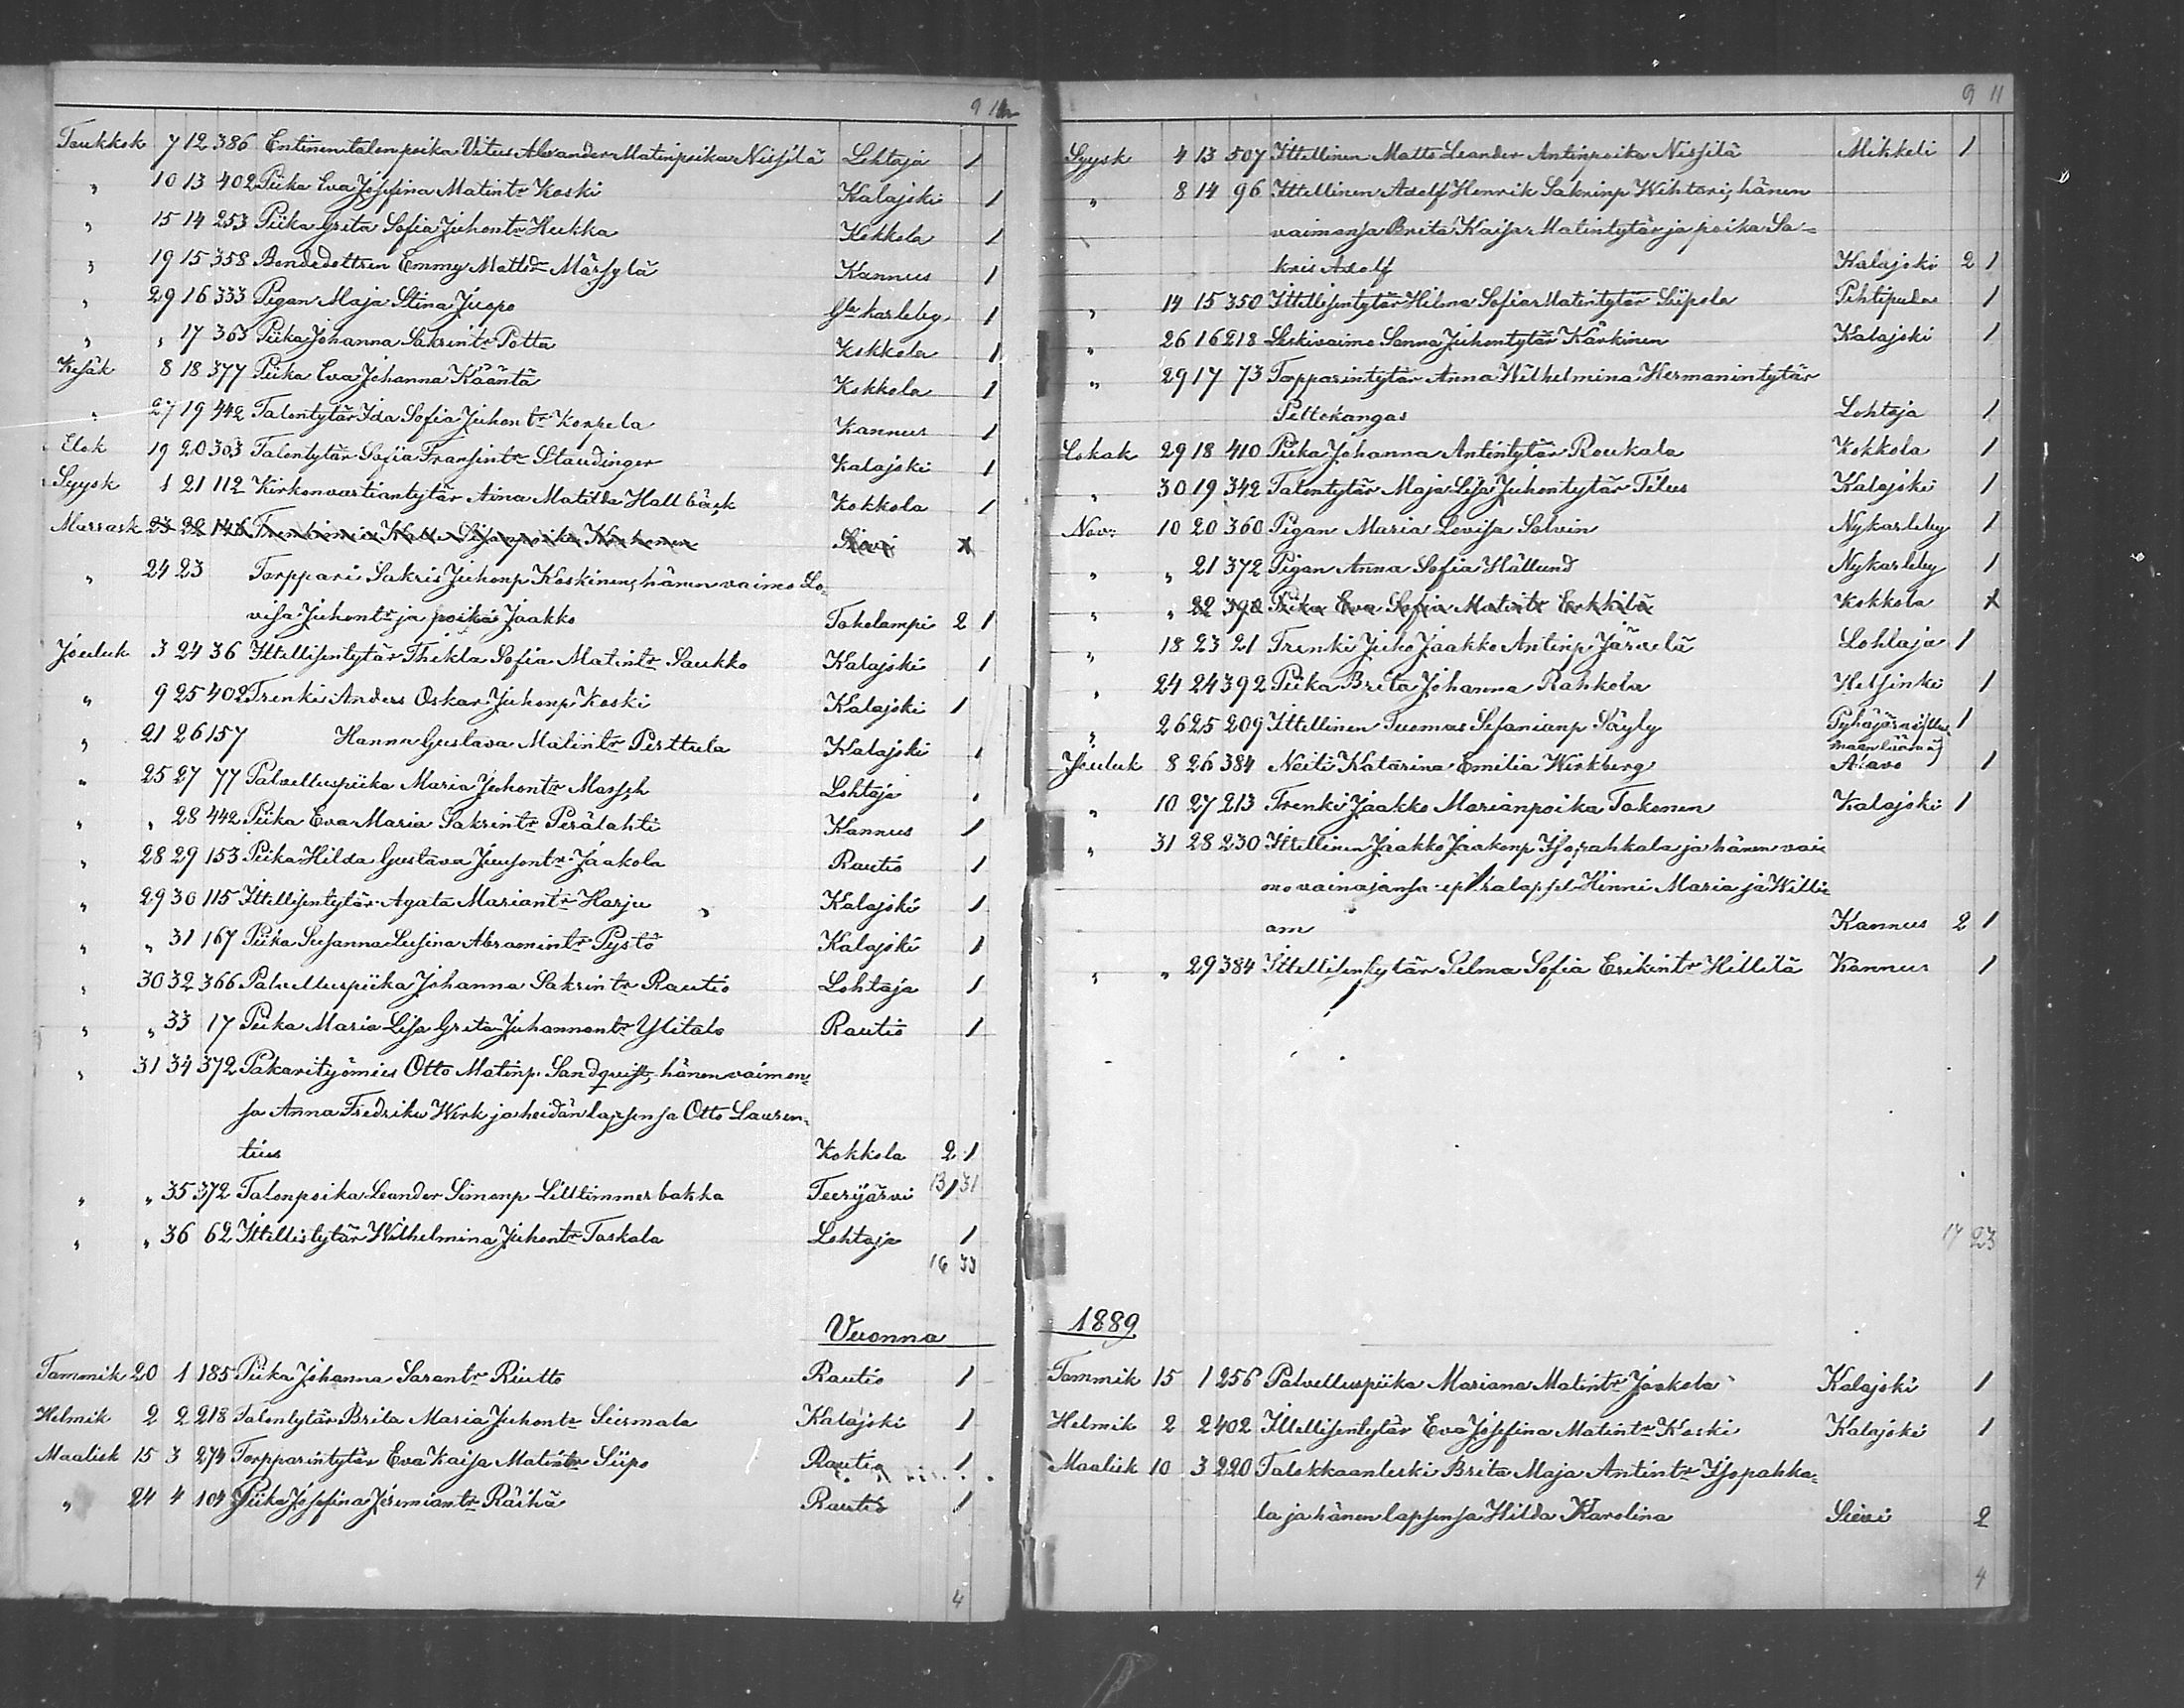 9 11
Toukkok 7 12 386 Entinen talonpoika Vitus Alexander Matinpoika Nissilä Lohtaja 1
" 10 13 402 Piika Eva Josefina Matintr Koski Kalajoki 1
" 15 14 253 Piika Greta Sofia Juhontr Hukka Kokkola 1
" 19 15 358 Bondedottren Emmy Mattdr Märsylä Kannus 1
" 29 16 333 Pigan Maja Stina Juopo Gla karleby 1
" " 17 363 Piika Johanna Sakrintr Potta Kokkola 1
Kesäk 8 18 377 Piika Eva Johanna Kääntä Kokkola 1
" 27 19 442 Talontytär Ida Sofia Juhontr Korpela Kannus 1
Elok 19 20 303 Talontytär Sofia Fransintr Staudinger Kalajoki 1
Syysk 1 21 112 Kirkonvartiantytär Aina Matilda Hallbäck Kokkola 1
Marrask 23 22 146 Trenkimies Kalle Korhonen Sievi
" 24 23 Torppari Sakris Juhonp Koskinen, hänen vaimo Lo-
visa Juhontr ja poika Jaakko Toholampi 2 1
Jouluk 3 24 36 Ittellisentytär Thekla Sofia Matintr Saukko Kalajoki 1
" 9 25 402 Trenki Anders Oskar Juhonp Koski Kalajoki 1
" 21 26 157 Hanna Gustava Matintr Perttula Kalajoki 1
" 25 27 77 Palvelluspiika Maria Juhontr Lohtaja 1
" " 28 442 Piika Eva Maria Sakrintr Perälahti Kannus 1
" 28 29 153 Piika Hilda Gustava Juusontr Jaakola Rautio 1
" 29 30 115 Ittellisentytär Agata Mariantr Harju Kalajoki 1
" " 31 167 Piika Susanna Lusina Abramintr Pystö Kalajoki 1
" 30 32 366 Palvelluspiika Johanna Sakrintr Rautio Lohtaja 1
" " 33 17 Piika Maria Lisa Greta Juhannontr Ylitalo Rautio 1
" 31 34 372 Pakarityömies Otto Matinp. Sandqvist, hänen vaimon-
sa Anna Fredrika Wirk ja heidän lapsensa Otto Lauren-
tius Kokkola 2 1
" " 35 372 Talonpoika Leander Simonp Lilltimmerbakka Teerijärvi 1 13 31
" " 36 62 Ittellistytär Wilhelmina Juhontr Taskala Lohtaja 1
16 33
Vuonna
Tammik 20 1 185 Piika Johanna Sarantr Riutto Rautio 1
Helmik 2 2 218 Talontytär Brita Maria Juhontr Siermala Kalajoki 1
Maalisk 15 3 274 Torpparintytär Eva Kaisa Matintr Siipo Rautio 1
" 24 4 104 Piika Josefina Jeremiantr Räihä Rautio 1
4
9 11
Syysk 4 13 507 Ittellinen Matts Leander Antinpoika Nissilä Mikkeli 1
" 8 14 96 Ittellinen Adolf Henrik Sakrinp Wihtari, hänen
vaimonsa Brita Kaisa Matintytär ja poika Sa-
kris Adolf Kalajoki 2 1
" 14 15 350 Ittellisentytär Hilma Sofia Matintytär Siipola Pihtipudas 1
" 26 16 218 Leskivaimo Sanna Juhontytär Kärkinen Kalajoki 1
" 29 17 73 Torpparintytär Anna Wilhelmina Hermanintytär
Peltokangas Lohtaja 1
Lokak 29 18 410 Piika Johanna Antintytär Roukala Kokkola 1
" 30 19 342 Talontytär Maja Lisa Juhontytär Tilus Kalajoki 1
Nov: 10 20 360 Pigan Maria Lovisa Solvin Nykarleby 1
" " 21 372 Pigan Anna Sofia Hällund Nykarleby 1
" " 22 398 Piika Eva Sofia Matintr Erkkilä Kokkola
" 18 23 21 Trenki Juho Jaakko Antinp Järvelä Lohtaja 1
" 24 24 392 Piika Brita Johanna Rahkola Helsinki 1
" 26 25 209 Ittellinen Tuomas Sefanianp Säyly Pyhäjärvi 1
maan läänä)
Jouluk 8 26 384 Neiti Katarina Emilia Wirkberg Alavo 1
" 10 27 213 Trenki Jaakko Marianpoika Takonen Kalajoki 1
" 31 28 230 Ittellinen Jaakko Jaakonp Isopahkala ja hänen vai-
mo vainajansa Hinni Maria ja Willi-
am Kannus 2 1
" " 29 384 Ittellisentytär Selma Sofia Erikintr Hillilä Kannus 1
17 23
1889
Tammik 15 1 256 Palvelluspiika Mariana Matintr Jaakola Kalajoki 1
Helmik 2 2 402 Ittellisentytär Eva Josefina Matintr Koski Kalajoki 1
Maalisk 10 3 220 Talokkaanleski Brita Maja Antintr Isopahka-
la ja hänen lapsensa Hilda Karolina Sievi 2
4